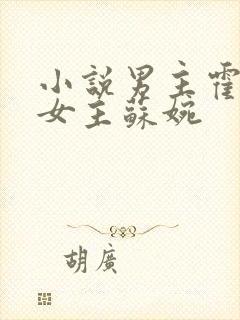 小說男主霍
女主蘇婉
胡廣